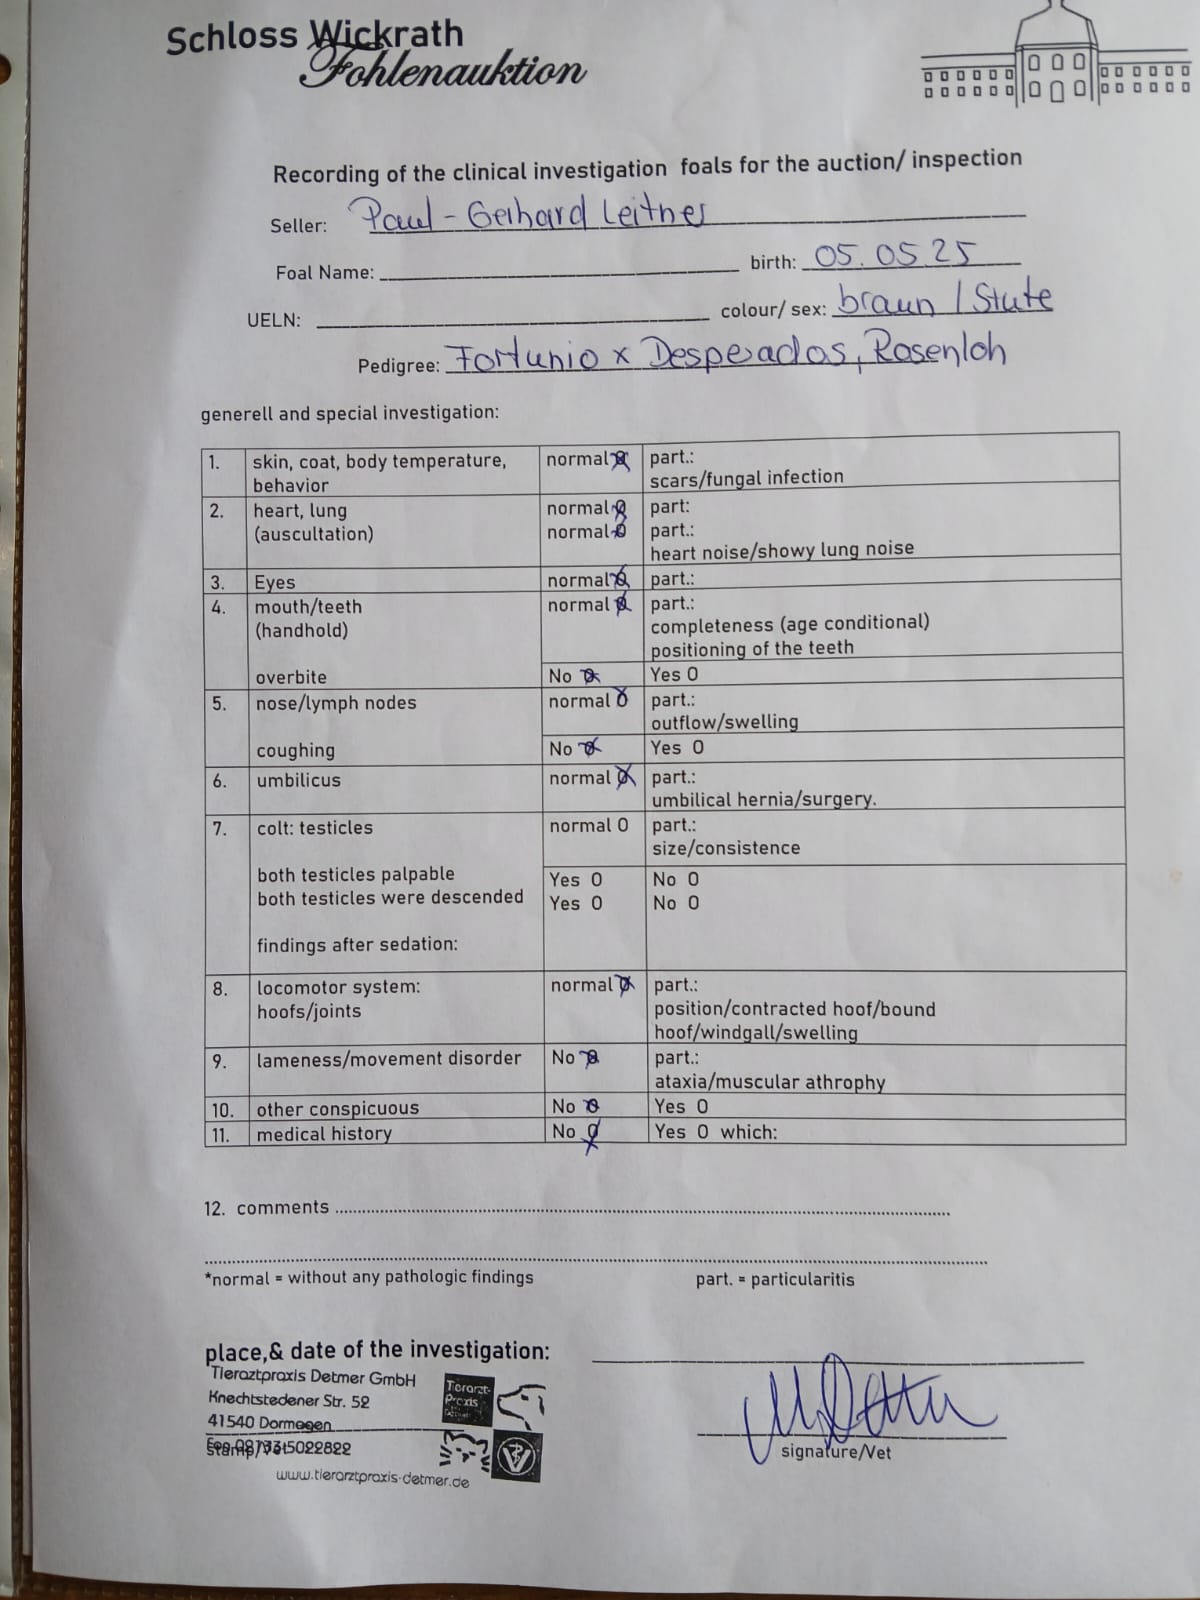 Schloss Wickrath
Fohlenauktion
Recording of the clinical investigation foals for the auction/ inspection
Seller: Paul-Gerhard Leitner
Foal Name: birth: 05.05.25
UELN: colour/ sex: braun / Stute
Pedigree: Fortunio x Desperados, Rosenloh
generell and special investigation:
1. skin, coat, body temperature, normal part.:
behavior scars/fungal infection
2. heart, lung normal part:
(auscultation) normal part.:
heart noise/showy lung noise
3. Eyes normal part.:
4. mouth/teeth normal part.:
(handhold) completeness (age conditional)
positioning of the teeth
overbite No Yes 0
5. nose/lymph nodes normal part.:
outflow/swelling
coughing No Yes 0
6. umbilicus normal part.:
umbilical hernia/surgery.
7. colt: testicles normal 0 part.:
size/consistence
both testicles palpable Yes 0 No 0
both testicles were descended Yes 0 No 0
findings after sedation:
8. locomotor system: normal part.:
hoofs/joints position/contracted hoof/bound
hoof/windgall/swelling
9. lameness/movement disorder No part.:
ataxia/muscular athrophy
10. other conspicuous No Yes 0
11. medical history No Yes 0 which:
12. comments
*normal = without any pathologic findings part. = particularitis
place,& date of the investigation:
Tieraztpraxis Detmer GmbH
Knechtstedener Str. 52
41540 Dormagen
Tierarzt-
Praxis
www.tierarztpraxis-detmer.de
signature/Vet